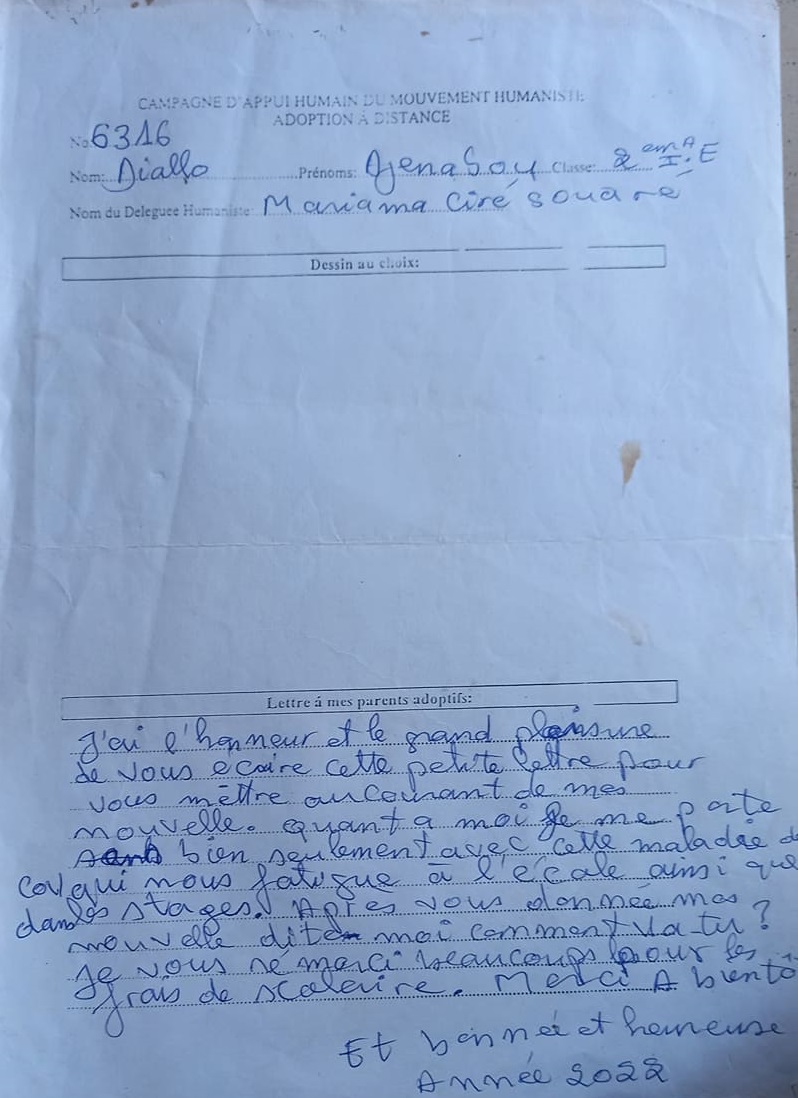 CAMPAGNE D'APPUI HUMAIN DU MOUVEMENT HUMANISTE
ADOPTION À DISTANCE
No 6316
Nom: Diallo Prénoms: Djenabou Classe: 2 em A I.E
Nom du Deleguee Humaniste: Mariama Ciré souaré
Dessin au choix:
Lettre á mes parents adoptifs:
J'ai l'honneur et le grand plaisure
de vous ecaire cette petite lettre pour
vous mèttre au courant de mes
nouvelle. equant a moi je me porte
bien seulement avec cette maladie de
Cov qui nous fatigue à l'écale ainsi que
dans les stages. Après vous donnée mes
nouvelle dite moi comment va-tu?
Je vous ré merci beaucoups pour les
frais de scalaire. Merci A biento
Et bonneé et heureuse
Année 2022